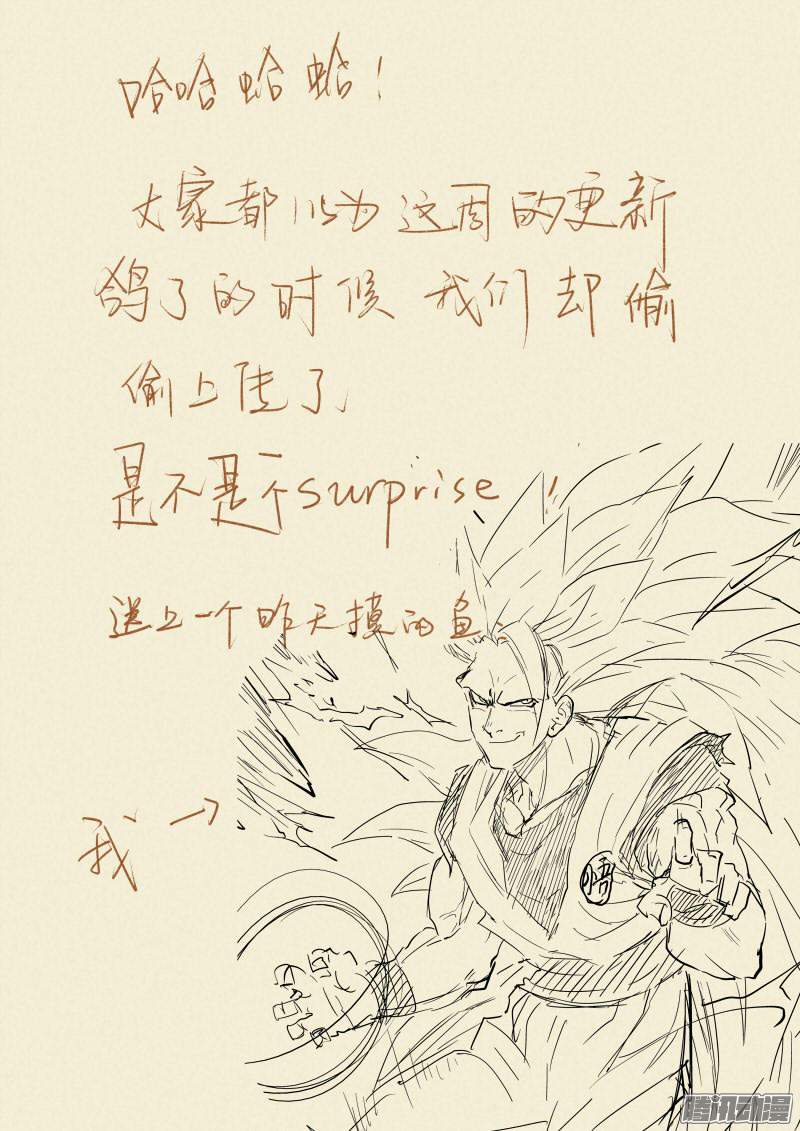 哈哈蛤蛤!
大家都以为这周的更新
鸽了的时候 我们却偷
偷上传了
是不是个surprise!
送上一个昨天摸的鱼.
我→
悟
腾讯动漫